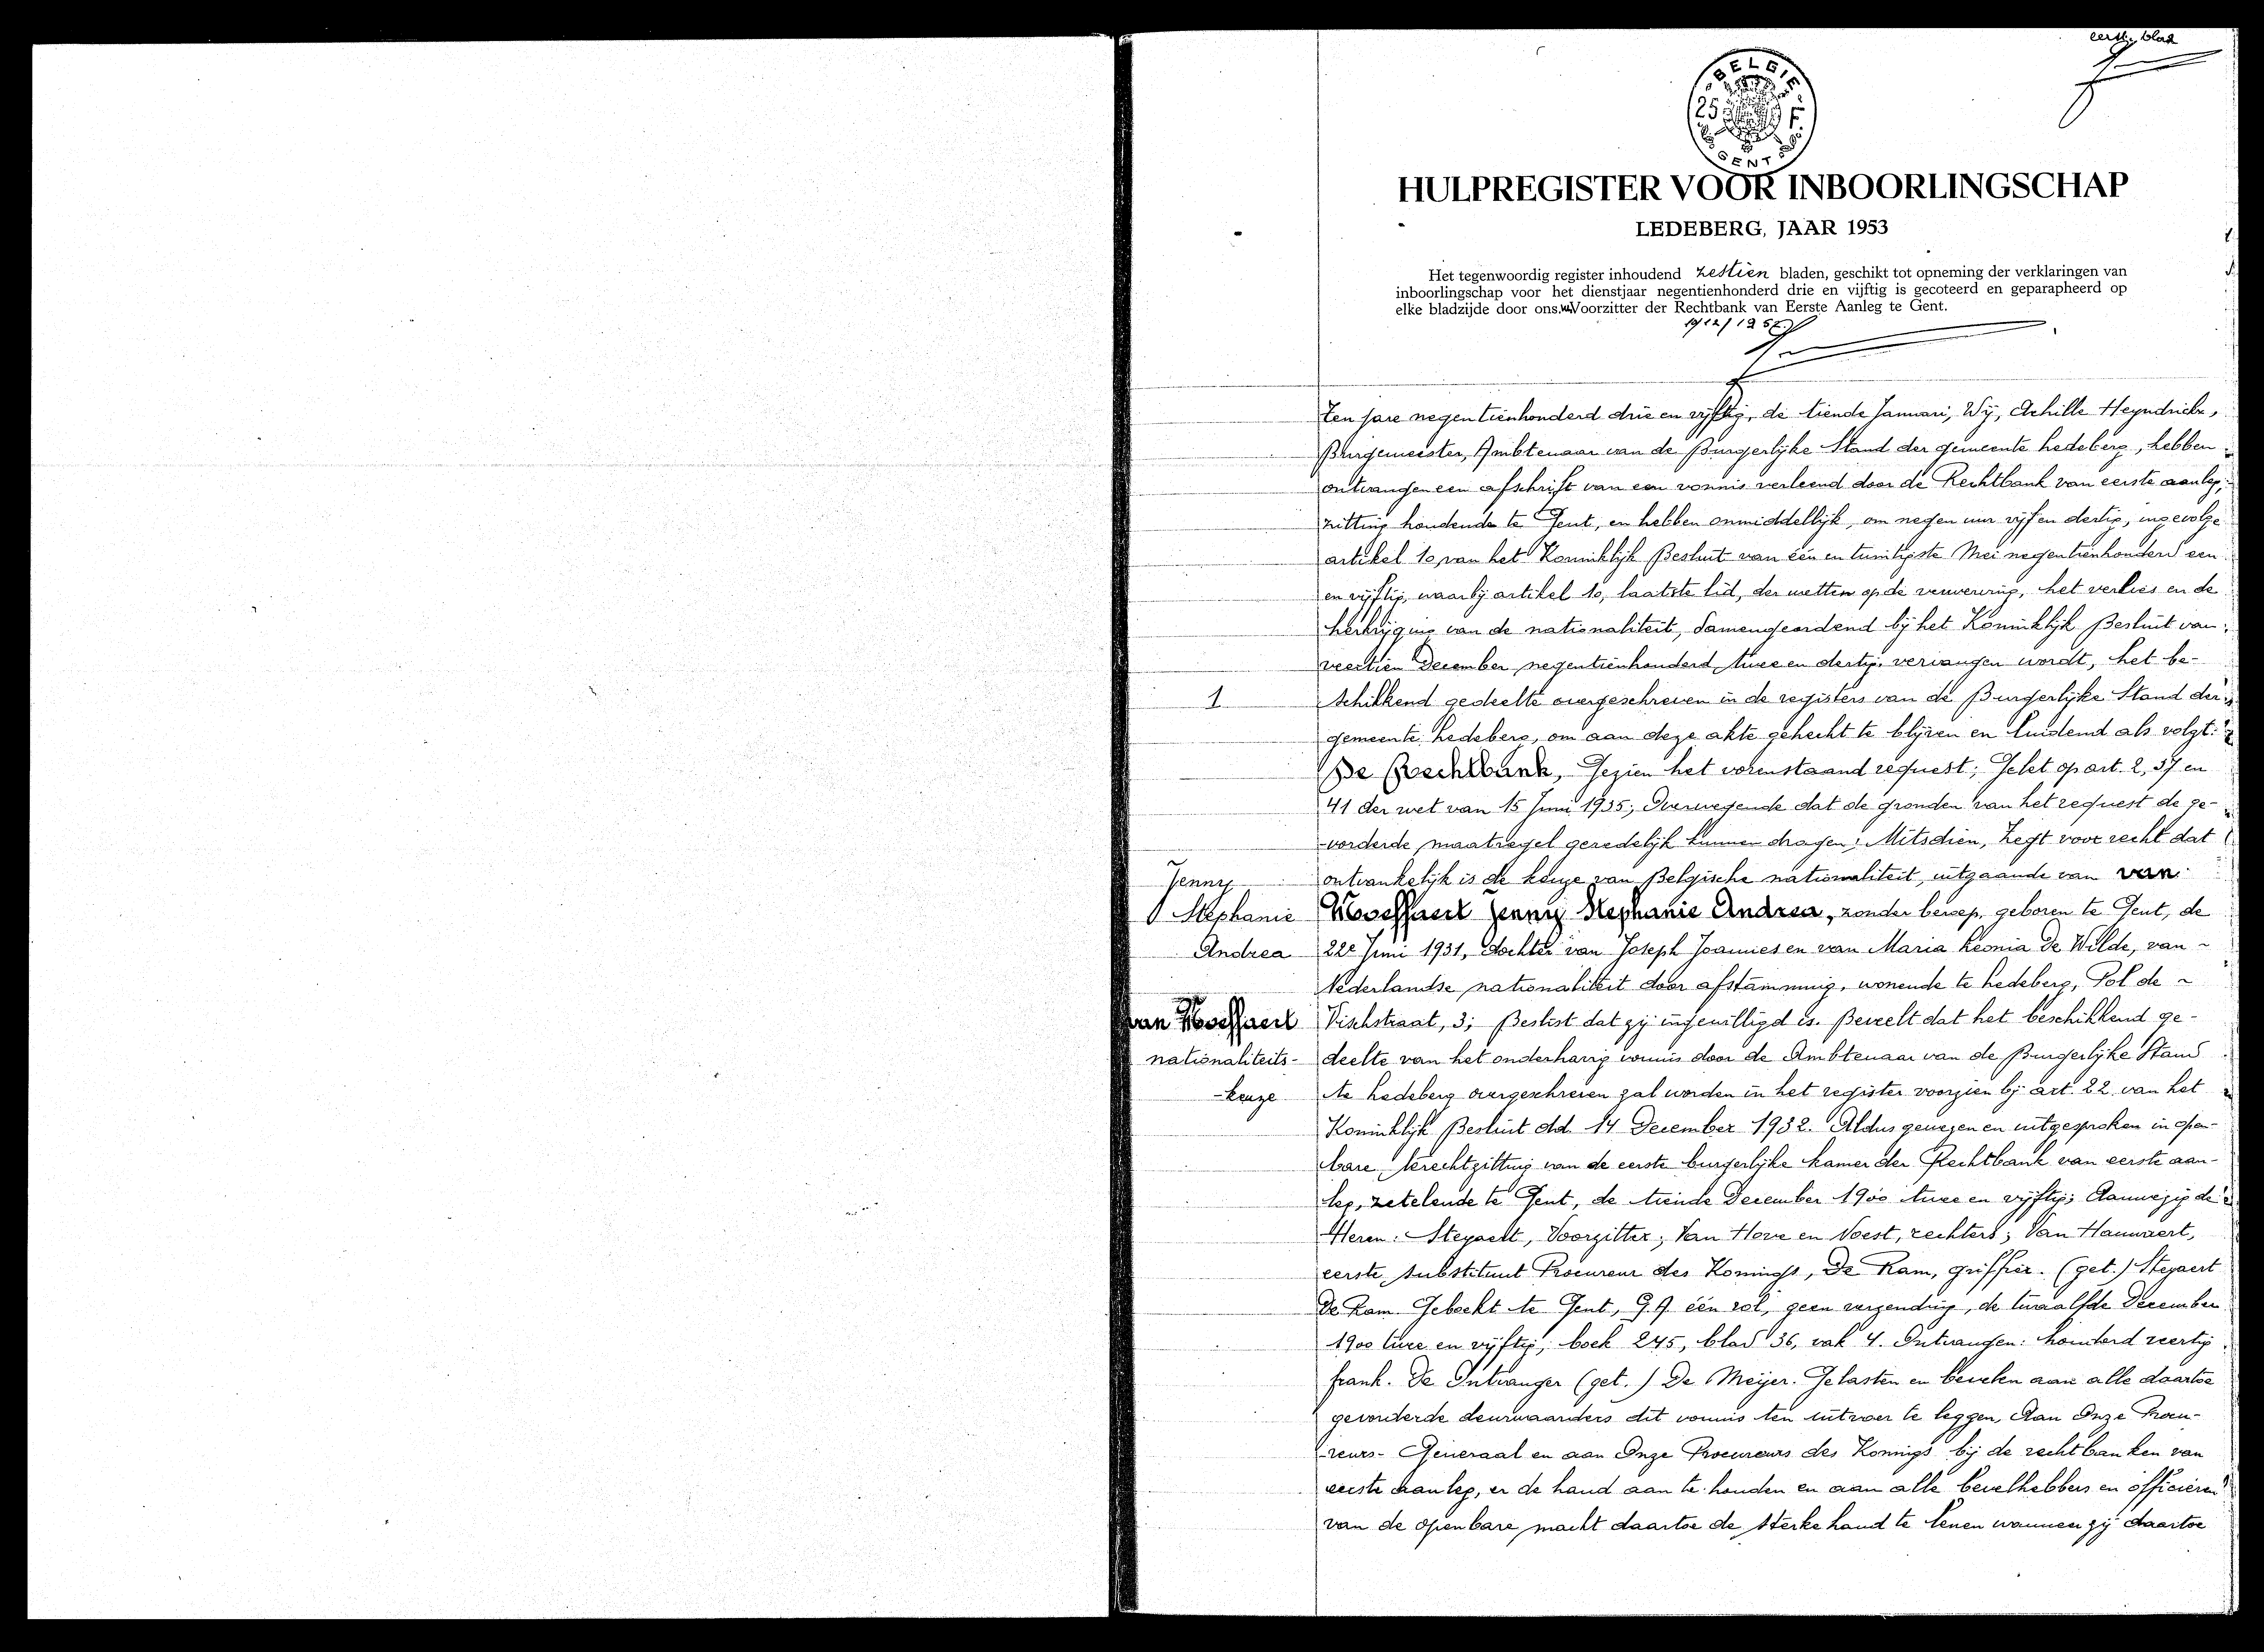 eerste blad
BELGIE
25 F
GENT
HULPREGISTER VOOR INBOORLINGSCHAP
LEDEBERG, JAAR 1953
Het tegenwoordig register inhoudend zestien bladen, geschikt tot opneming der verklaringen van
inboorlingschap voor het dienstjaar negentienhonderd drie en vijftig is gecoteerd en geparapheerd op
elke bladzijde door ons. Voorzitter der Rechtbank van Eerste Aanleg te Gent.
Ten jare negentienhonderd drie en vijftig, de tiende Januari, Wij, Achille Heyndrickx,
Burgemeester, Ambtenaar van de Burgerlijke Stand der gemeente Ledeberg, hebben
ontvangen een afschrift van een vonnis verleend door de Rechtbank van eerste aanleg,
zitting houdende te Gent, en hebben onmiddellijk, om negen uur vijf en dertig, ingevolge
artikel 10 van het Koninklijk Besluit van één en twintigste Mei negentienhonderd een
en vijftig, waarbij artikel 10, laatste lid, der wetten op de verwerving, het verlies en de
herkrijging van de nationaliteit, samengeordend bij het Koninklijk Besluit van
veertien December negentienhonderd twee en dertig, vervangen wordt, het be-
1
schikkend gedeelte overgeschreven in de registers van de Burgerlijke Stand der
gemeente Ledeberg, om aan deze akte gehecht te blijven en luidend als volgt:
De Rechtbank, Gezien het vorenstaand request; Gelet op art. 2, 37 en
41 der wet van 15 Juni 1935; Overwegende dat de gronden van het request de ge-
vorderde maatregel geredelijk kunnen dragen; Mitsdien, Zegt voor recht dat
Jenny
ontvankelijk is de keuze van Belgische nationaliteit, uitgaande van van
Stephanie
Jenny Stephanie Andrea, zonder beroep, geboren te Gent, de
Andrea
22e Juni 1931, dochter van Joseph Joannes en van Maria Leonia De Wilde, van
Nederlandse nationaliteit door afstamming, wonende te Ledeberg, Pol de
van
Vischstraat, 3; Beslist dat zij ingewilligd is. Beveelt dat het beschikkend ge-
nationaliteits-
deelte van het onderhavig vonnis door de Ambtenaar van de Burgerlijke Stand
-keuze
te Ledeberg overgeschreven zal worden in het register voorzien bij art. 22 van het
Koninklijk Besluit dd. 14 December 1932. Aldus gewezen en uitgesproken in open-
bare terechtzitting van de eerste burgerlijke kamer der Rechtbank van eerste aan-
leg, zetelende te Gent, de tiende December 1900 twee en vijftig; Aanwezig de
Heren: Steyaert, Voorzitter; Van Hove en Voest, rechters; Van Hauwaert,
eerste substituut Procureur des Konings, De Ram, griffier. (get.) Steyaert
De Ram Geboekt te Gent, één rol, geen verzending, de twaalfde December
1900 twee en vijftig, boek 245, blad 36, vak 4. Ontvangen: honderd veertig
frank. De Ontvanger (get.) De Meijer. Gelasten en bevelen aan alle daartoe
gevorderde deurwaarders dit vonnis ten uitvoer te leggen, Aan Onze Procu-
reurs-Generaal en aan Onze Procureurs des Konings bij de rechtbanken van
eerste aanleg, er de hand aan te houden en aan alle bevelhebbers en officieren
van de openbare macht daartoe de sterke hand te lenen wanneer zij daartoe